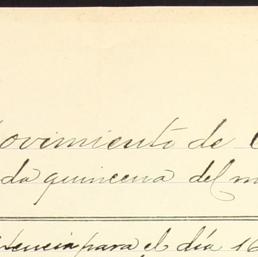 ovimiento de
da quincena del m
tencia para el día 16